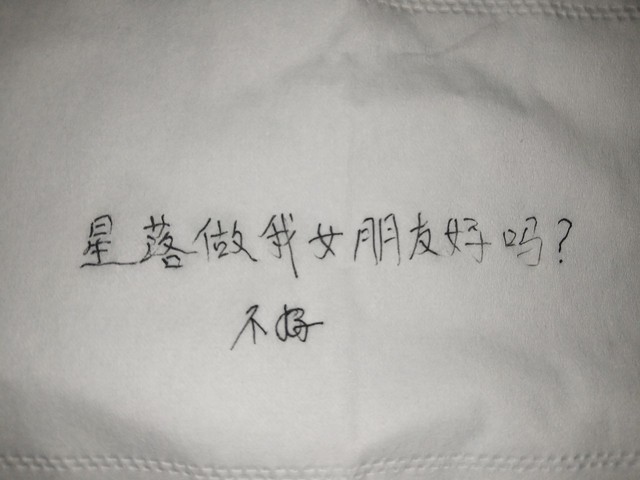 星落做我女朋友好吗?
不好